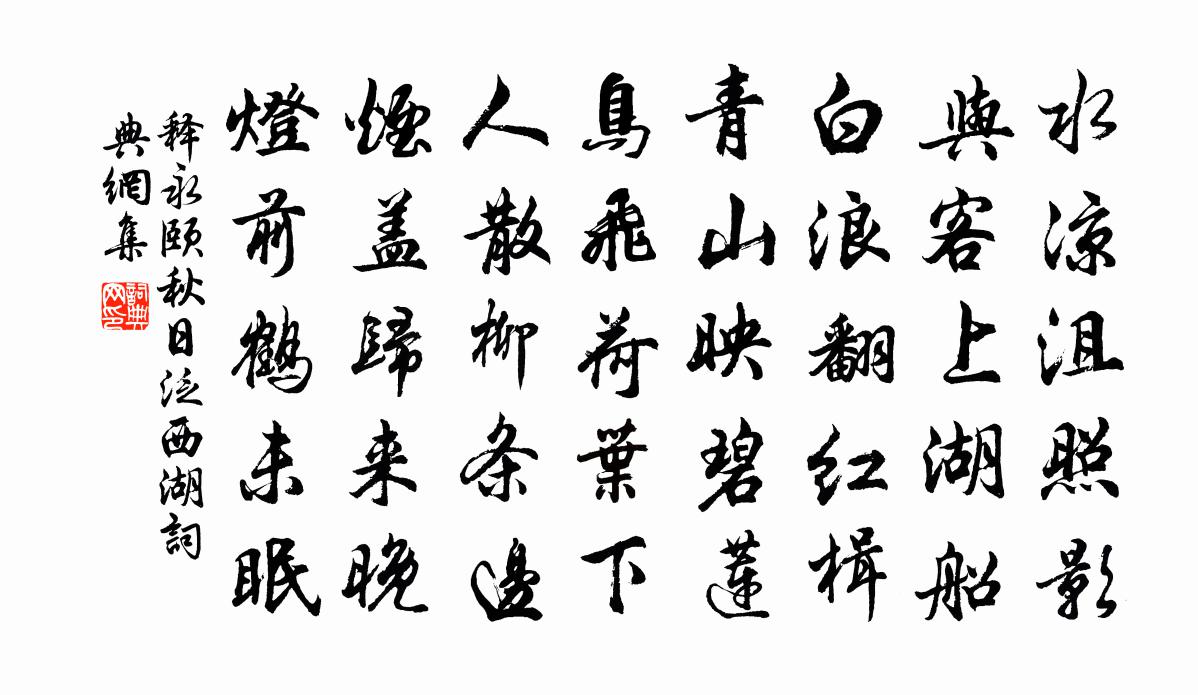 水涼沮照影
與客上湖船
白浪翻红楫
青山映碧蓮
鳥飛荷葉下
人散柳条邊
煙盖歸来晚
燈前鶴未眠
释永颐秋日泛西湖詞
典網集
詞典
网印